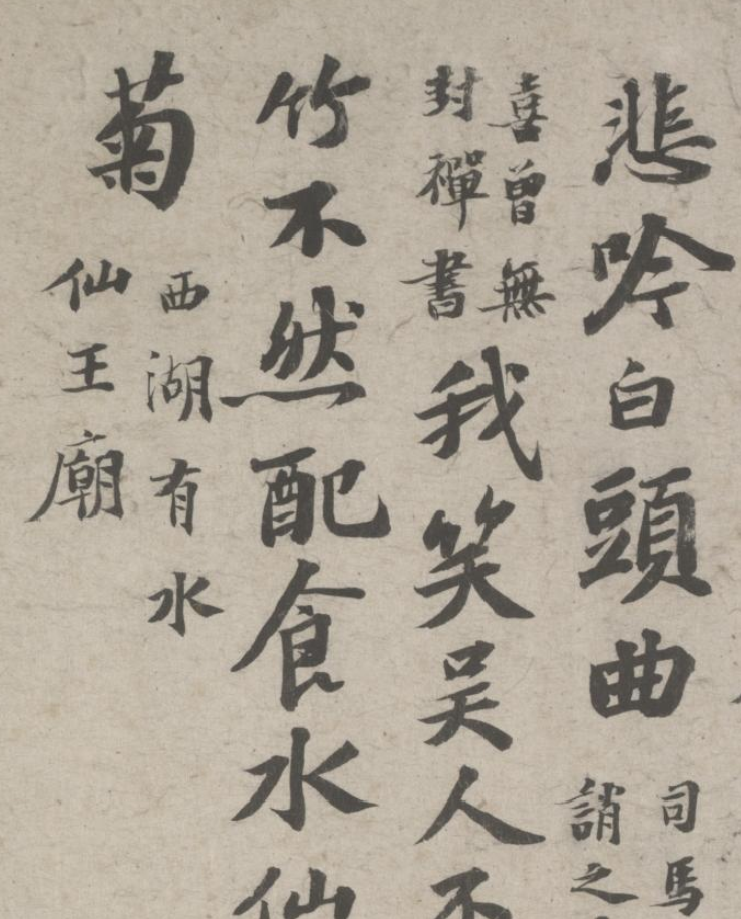 悲吟白頭曲
司馬
誚之
喜曾無
封禪書
我笑吳人不
竹不然配食水仙
菊
西湖有水
仙王廟